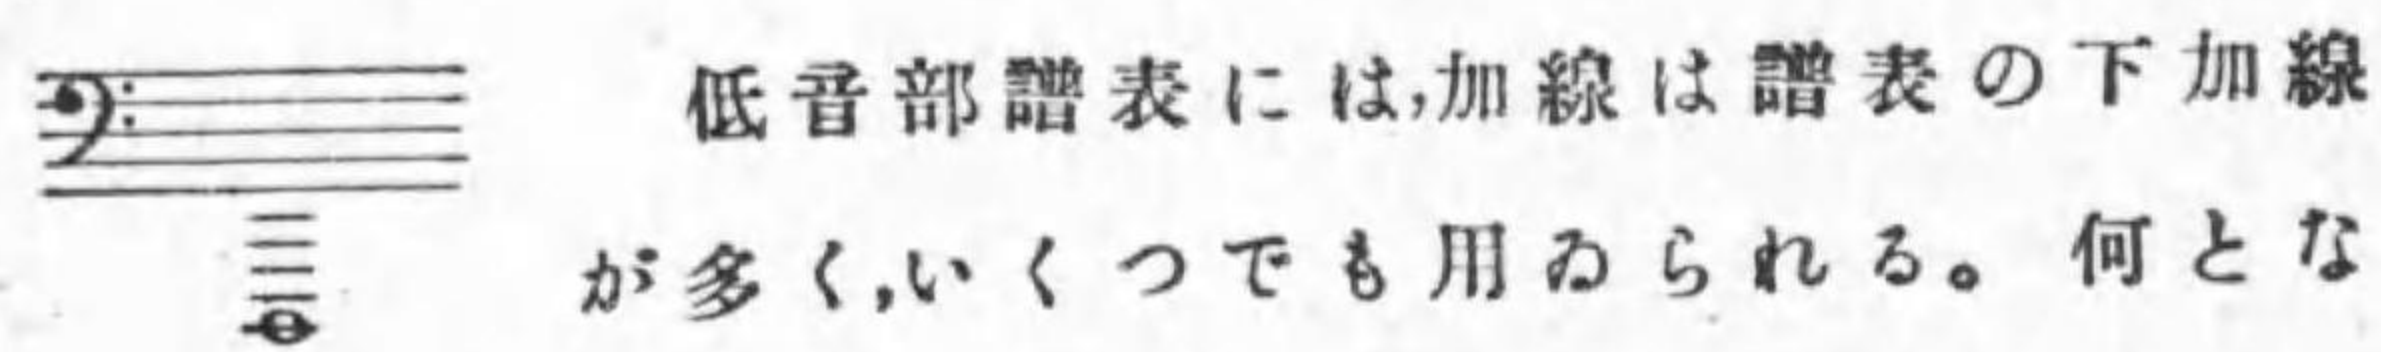 低音部譜表には,加線は譜表の下加線
が多く,いくつでも用ゐられる。何とな